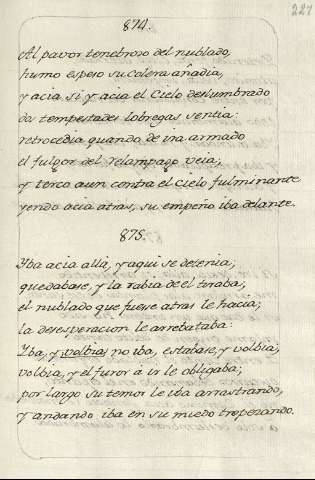 227
874.
Al pavor tenebroso del nublado,
humo espeso su colera añadia,
y acia si y acia el Cielo deslumbrado
dos tempestades lobregas sentia:
retrocedia quando de ira armado
el fulgor del relampago veia;
y terco aun contra el Cielo fulminante
yendo acia atras, su empeño iba delante.
875.
Yba acia allà, y aqui se detenia;
quedabase, y la rabia de el tiraba;
el nublado que fuese atras le hacia;
la desesperacion le arrebataba:
Yba, y volbia; no iba, estabase, y volbia;
volbia, y el furor à ir le obligaba;
por largo su temor le iba arrastrando,
y andando iba en su miedo tropezando.